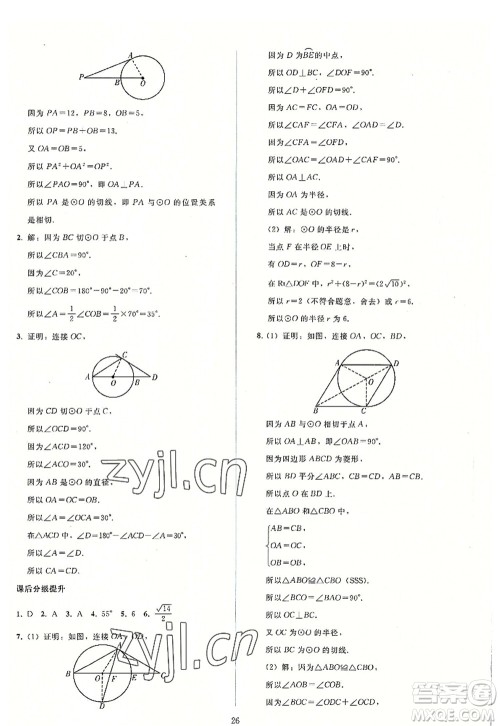 A
P
B
O
因为 PA=12，PB=8，OB=5，
所以 OP=PB+OB=13.
又 OA=OB=5，
所以 PA²+OA²=OP².
所以∠PAO=90°，即 OA⊥PA.
所以 PA 是⊙O 的切线，即 PA 与⊙O 的位置关系
是相切.
2. 解：因为 BC 切⊙O 于点 B，
所以∠CBA=90°.
因为∠C=20°，
所以∠COB=180°-90°-20°=70°.
所以∠A=1/2∠COB=1/2×70°=35°.
3. 证明：连接 OC，
C
A
O
B
D
因为 CD 切⊙O 于点 C，
所以∠OCD=90°.
因为∠ACD=120°，
所以∠ACO=30°.
因为 AB 是⊙O 的直径，
所以 OA=OC=OB.
所以∠A=∠ACO=30°.
在△ACD 中，∠D=180°-∠ACD-∠A=30°，
所以∠A=∠D.
所以 CA=CD.
课后分级提升
1. D 2. A 3. A 4. 55° 5. 6 6. √14/2
7. (1) 证明：如图，连接 OA，OD，
A
B
O
F
E
C
D
因为 D 为BE的中点，
所以 OD⊥BC，∠DOF=90°.
所以∠D+∠OFD=90°.
因为 AC=FC，OA=OD，
所以∠CAF=∠CFA，∠OAD=∠D.
因为∠CFA=∠OFD，
所以∠OAD+∠CAF=90°.
所以 OA⊥AC.
因为 OA 为半径，
所以 AC 是⊙O 的切线.
(2) 解：⊙O 的半径是 r，
当点 F 在半径 OE 上时，
有 OD=r，OF=8-r，
在 Rt△DOF 中，r²+(8-r)²=(2√10)²，
所以 r=2（不符合题意，舍去），r=6.
所以⊙O 的半径为 6.
8. (1) 证明：如图，连接 AO，OC，BD，
A
D
O
B
C
因为 AB 与⊙O 相切于点 A，
所以∠BAO=90°.
因为四边形 ABCD 为菱形，
所以 BD 平分∠ABC，AB=CB.
所以点 O 在 BD 上.
在△ABO 和△CBO 中，
AB=CB，
OA=OC，
OB=OB，
所以△ABO≌△CBO (SSS).
所以∠BCO=∠BAO=90°.
所以 OC⊥BC.
又 OC 为⊙O 的半径，
所以 BC 为⊙O 的切线.
(2) 解：因为△ABO≌△CBO，
所以∠AOB=∠COB.
因为 OD=OC，
所以∠ODC=∠OCD.
26
zyjl.cn
zyjl.cn
答案圈
MXQE.COM